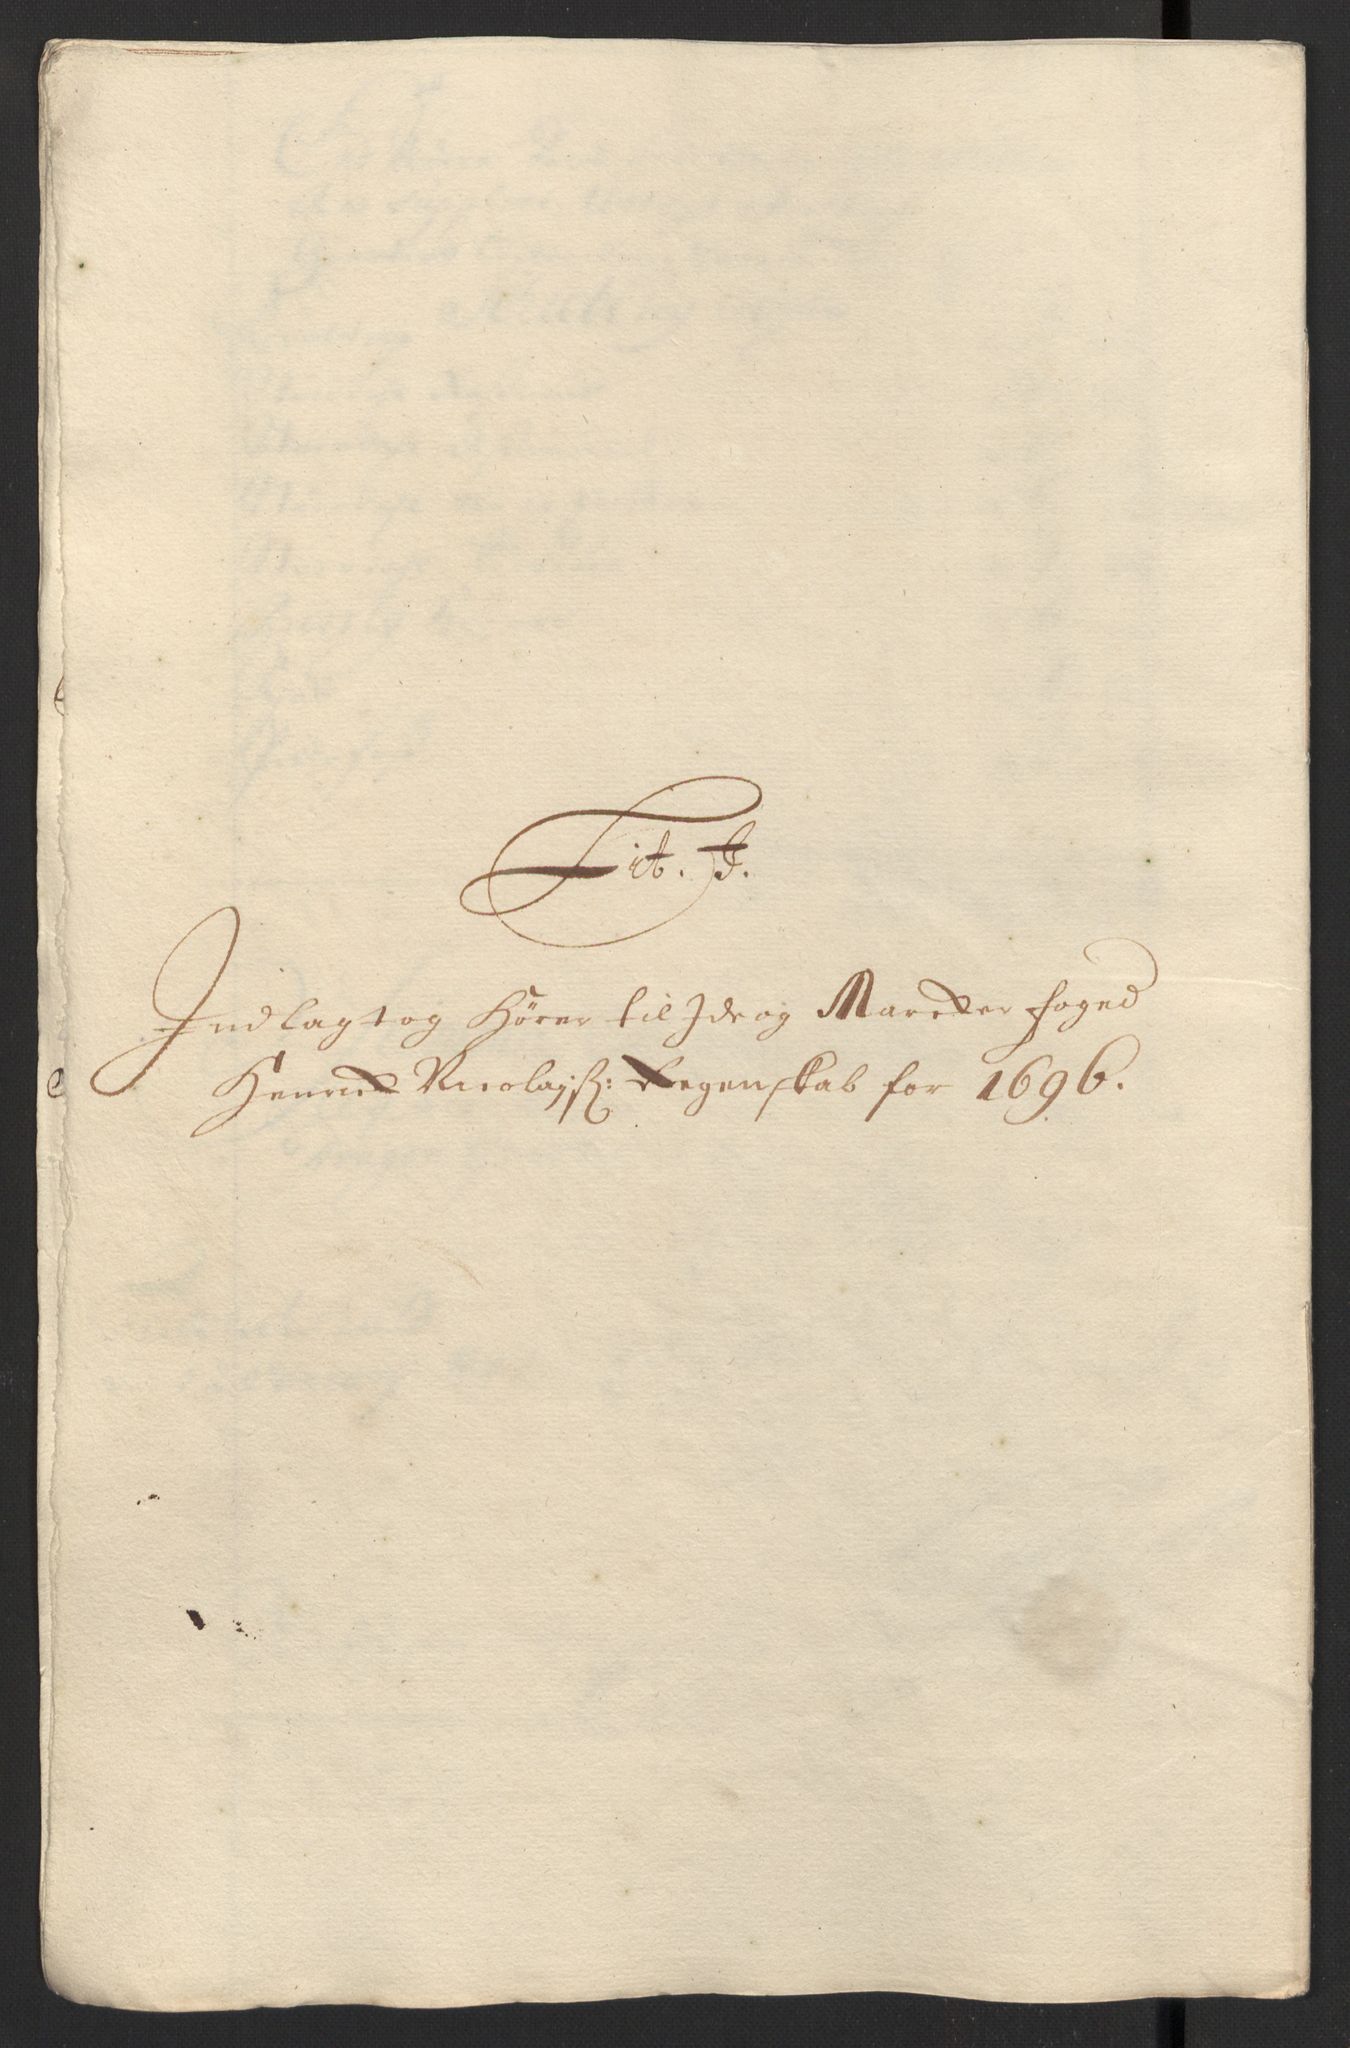 Lit. J.
Indlagt og Hörer til Ide og Marcker foged
Henrick Nicolajsß: Regenskab for 1696.